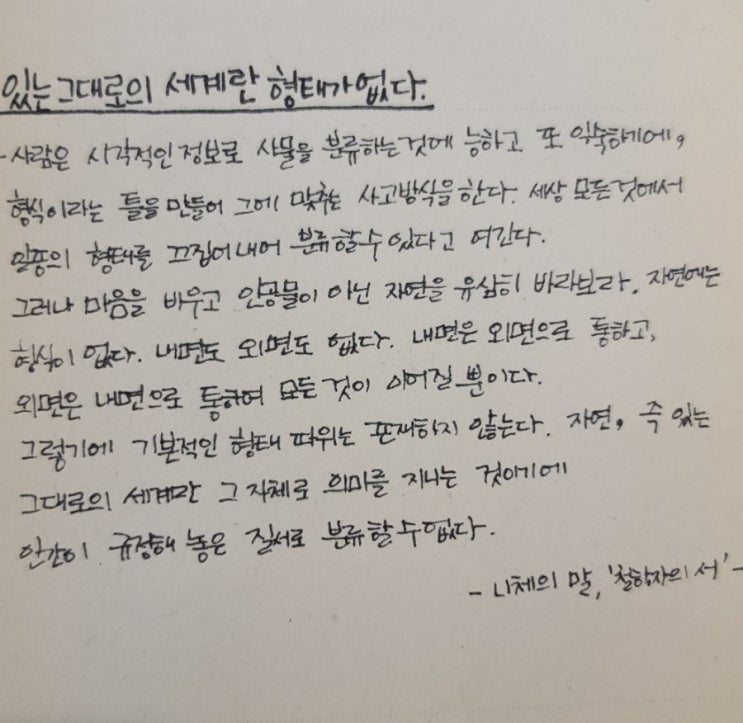 있는 그대로의 세계란 형태가 없다.
- 사람은 시각적인 정보로 사물을 분류하는 것에 능하고 또 익숙하기에,
형식이라는 틀을 만들어 그에 맞추는 사고방식을 한다. 세상 모든 것에서
일종의 형태를 끄집어내어 분류할 수 있다고 여긴다.
그러나 마음을 비우고 인공물이 아닌 자연을 유심히 바라보라. 자연에는
형식이 없다. 내면도 외면도 없다. 내면은 외면으로 통하고,
외면은 내면으로 통하여 모든 것이 이어질 뿐이다.
그렇기에 기본적인 형태 따위는 존재하지 않는다. 자연, 즉 있는
그대로의 세계란 그 자체로 의미를 지니는 것이기에
인간이 규정해 놓은 질서로 분류할 수 없다.
- 니체의 말, '철학자의 서' -